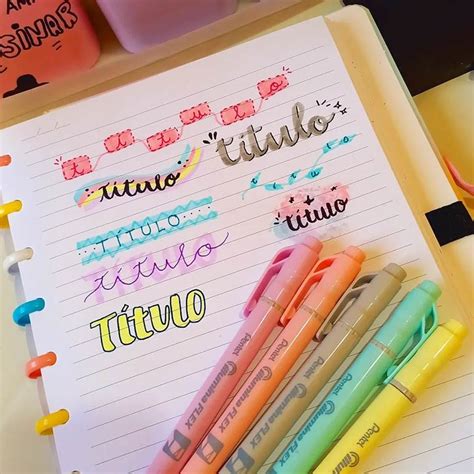 SINAR
título
título
título
título
TÍTULO
título
título
TÍTULO
Pentel illumina FLEX
Pentel illumina FLEX
Pentel illumina FLEX
Pentel illumina FLEX
Pentel illumina FLEX